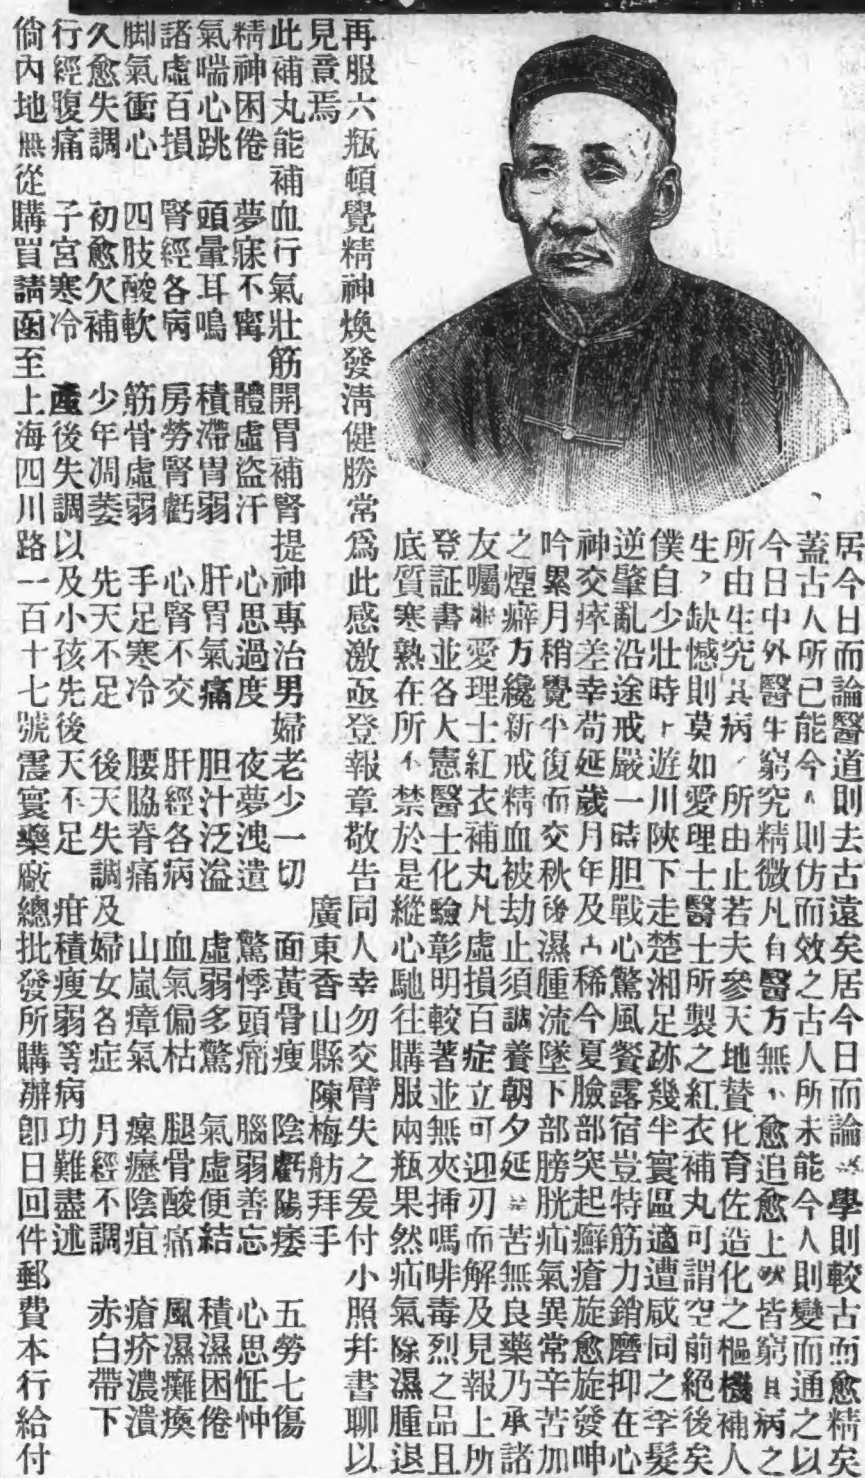 居今日而論醫道則去古遠矣居今日而論學則較古而愈精矣
蓋古人所已能今人則仿而效之古人所未能今人則變而通之以
今日中外醫生窮究精微凡自醫方無不愈追愈上然皆窮其病之
所由生究其病之所由止若夫參天地贊化育佐造化之樞機補人
生之缺憾則莫如愛理士醫士所製之紅衣補丸可謂空前絕後矣
僕自少壯時上遊川陜下走楚湘足跡幾半寰區適遭咸同之季髮
逆肇亂沿途戒嚴一時胆戰心驚風餐露宿豈特筋力銷磨抑在心
神交瘁差幸苟延歲月年及古稀今夏臉部突起癬瘡旋愈旋發呻
吟累月稍覺平復而交秋後濕腫流墜下部膀胱疝氣異常辛苦加
之煙癖方纔新戒精血被劫止須調養朝夕延苦無良藥乃承諸
友囑購愛理士紅衣補丸凡虛損百症立可迎刃而解及見報上所
登証書並各大憲醫士化驗彰明較著並無夾揷嗎啡毒烈之品且
底質寒熟在所不禁於是縱心馳往購服兩瓶果然疝氣除濕腫退
再服六瓶頓覺精神煥發淸健勝常爲此感激亟登報章敬告同人幸勿交臂失之爰付小照幷書聊以
見意焉
廣東香山縣陳梅舫拜手
此補丸能補血行氣壯筋開胃補腎提神專治男婦老少一切 面黃骨瘦 陰虧陽痿 五勞七傷
精神困倦 夢寐不甯 體虛盜汗 心思過度 夜夢洩遺 驚悸頭痛 腦弱善忘 心思怔忡
氣喘心跳 頭暈耳鳴 積滯胃弱 肝胃氣痛 胆汁泛溢 虛弱多驚 氣虛便結 積濕困倦
諸虛百損 腎經各病 房勞腎虧 心腎不交 肝經各病 血氣偏枯 腿骨酸痛 風濕癱瘓
脚氣衝心 四肢酸軟 筋骨虛弱 手足寒冷 腰脇脊痛 山嵐瘴氣 瘰癧陰疽 瘡疥濃潰
久愈失調 初愈欠補 少年凋萎 先天不足 後天失調及婦女各症 月經不調 赤白帶下
行經腹痛 子宮寒冷 產後失調以及小孩先後天不足 疳積瘦弱等病功難盡述
倘內地無從購買請函至上海四川路一百十七號震寰藥廠總批發所購辦卽日回件郵費本行給付